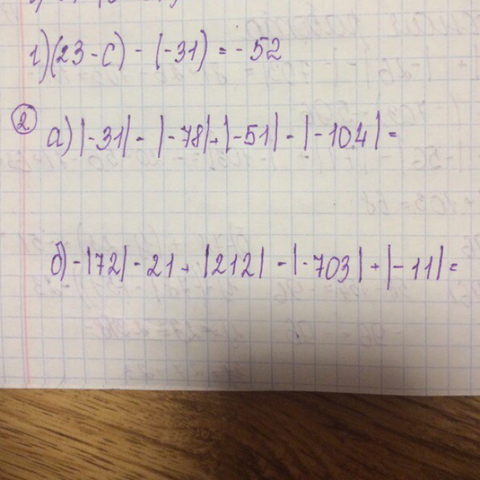 г)(23-c) - (-31) = -52
② а) |-31| - |-78| + |-51| - |-104| =
б) -|72| - 21 + |212| - |-703| + |-11| =